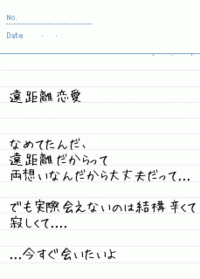 No.
Date ・ ・
遠距離恋愛
なめてたんだ、
遠距離だからって
両想いなんだから大丈夫だって...
でも実際会えないのは結構辛くて
寂しくて....
...今すぐ会いたいよ